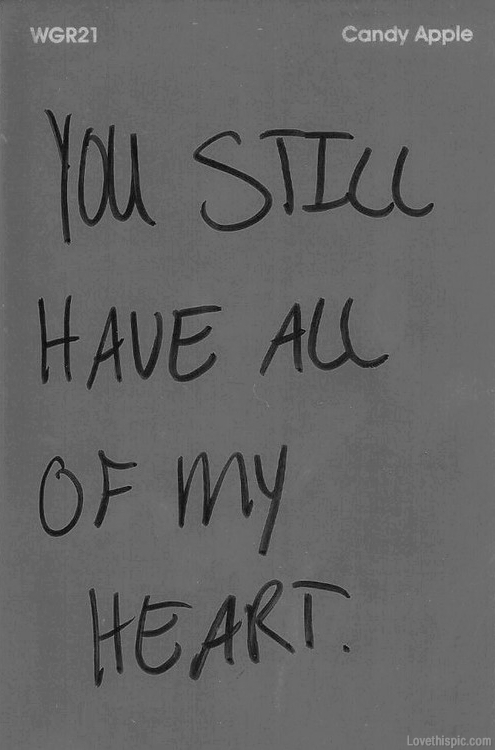 WGR21 Candy Apple
YOU STILL
HAVE ALL
OF MY
HEART.
Lovethispic.com